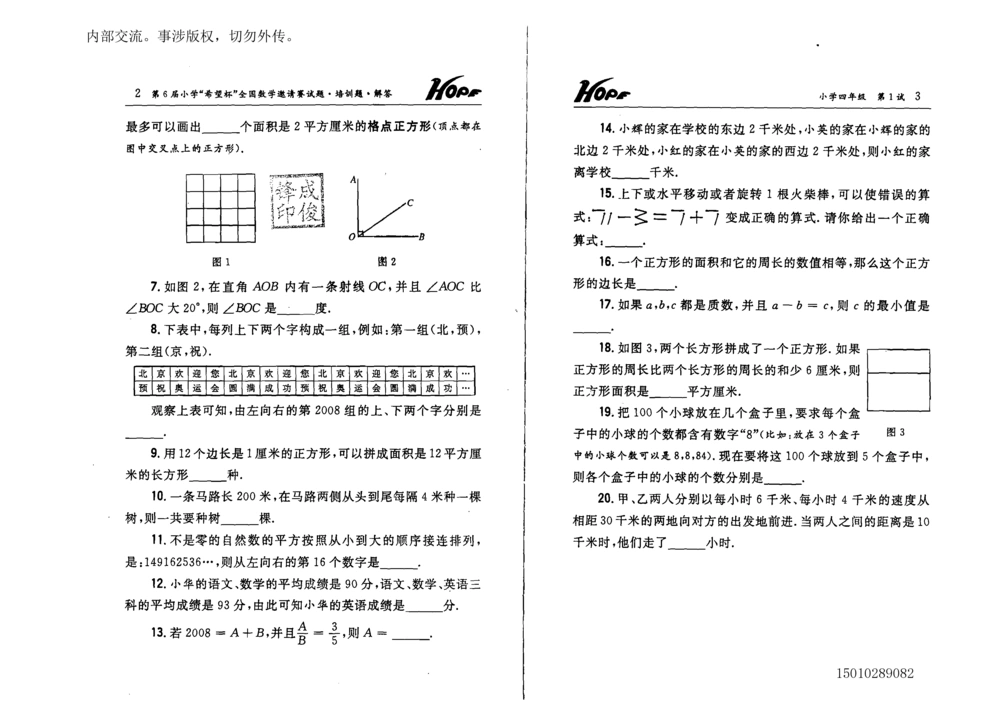 内部交流。事涉版权，切勿外传。
2 第6届小学“希望杯”全国数学邀请赛试题·培训题·解答 HOPE
最多可以画出____个面积是2平方厘米的格点正方形(顶点都在
图中交叉点上的正方形).
锋成
印俊
A
C
O
B
图1
图2
7.如图2,在直角AOB内有一条射线OC,并且∠AOC比
∠BOC大20°,则∠BOC是____度.
8.下表中,每列上下两个字构成一组,例如:第一组(北,预),
第二组(京,祝).
北 京 欢 迎 您 北 京 欢 迎 您 北 京 欢 迎 您 北 京 欢 …
预 祝 奥 运 会 圆 满 成 功 预 祝 奥 运 会 圆 满 成 功 …
观察上表可知,由左向右的第2008组的上、下两个字分别是
____.
9.用12个边长是1厘米的正方形,可以拼成面积是12平方厘
米的长方形____种.
10.一条马路长200米,在马路两侧从头到尾每隔4米种一棵
树,则一共要种树____棵.
11.不是零的自然数的平方按照从小到大的顺序接连排列,
是:149162536…,则从左向右的第16个数字是____.
12.小华的语文、数学的平均成绩是90分,语文、数学、英语三
科的平均成绩是93分,由此可知小华的英语成绩是____分.
13.若2008=A+B,并且A/B=3/5,则A=____.
HOPE 小学四年级 第1试 3
14.小辉的家在学校的东边2千米处,小英的家在小辉的家的
北边2千米处,小红的家在小英的家的西边2千米处,则小红的家
离学校____千米.
15.上下或水平移动或者旋转1根火柴棒,可以使错误的算
式:71-3=7+7变成正确的算式.请你给出一个正确
算式:____.
16.一个正方形的面积和它的周长的数值相等,那么这个正方
形的边长是____.
17.如果a,b,c都是质数,并且a-b=c,则c的最小值是
____.
18.如图3,两个长方形拼成了一个正方形.如果
正方形的周长比两个长方形的周长的和少6厘米,则
正方形面积是____平方厘米.
19.把100个小球放在几个盒子里,要求每个盒
子中的小球的个数都含有数字“8”(比如:放在3个盒子
图3
中的小球个数可以是8,8,84).现在要将这100个球放到5个盒子中,
则各个盒子中的小球的个数分别是____.
20.甲、乙两人分别以每小时6千米、每小时4千米的速度从
相距30千米的两地向对方的出发地前进.当两人之间的距离是10
千米时,他们走了____小时.
15010289082